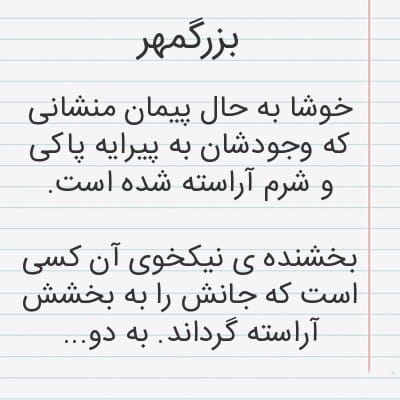 بزرگمهر
خوشا به حال پیمان منشانی
که وجودشان به پیرایه پاکی
و شرم آراسته شده است.
بخشنده ی نیکخوی آن کسی
است که جانش را به بخشش
آراسته گرداند. به دو...